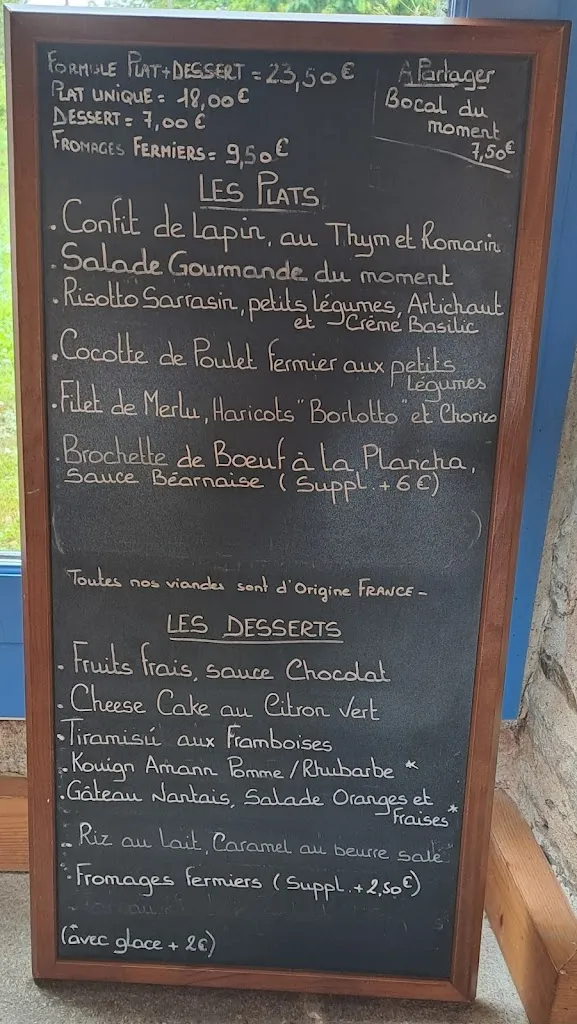 FORMULE PLAT+DESSERT = 23,50€
PLAT UNIQUE = 18,00€
DESSERT = 7,00 €
FROMAGES FERMIERS = 9,50€
A Partager
Bocal du
moment
7,50€
LES PLATS
. Confit de Lapin, au Thym et Romarin
. Salade Gourmande du moment
. Risotto Sarrasin, petits légumes, Artichaut
et Crème Basilic
. Cocotte de Poulet Fermier aux petits
Légumes
. Filet de Merlu, Haricots "Borlotto" et Chorizo
. Brochette de Boeuf à La Plancha,
Sauce Béarnaise (Suppl. +6€)
Toutes nos viandes sont d'Origine FRANCE -
LES DESSERTS
. Fruits frais, sauce Chocolat
. Cheese Cake au Citron Vert
. Tiramisú aux Framboises
. Kouign Amann Pomme / Rhubarbe *
. Gâteau Nantais, Salade Oranges et
Fraises *
- Riz au Lait, Caramel au beurre salé
. Fromages fermiers (Suppl. +2,50€)
(*avec glace + 2€)